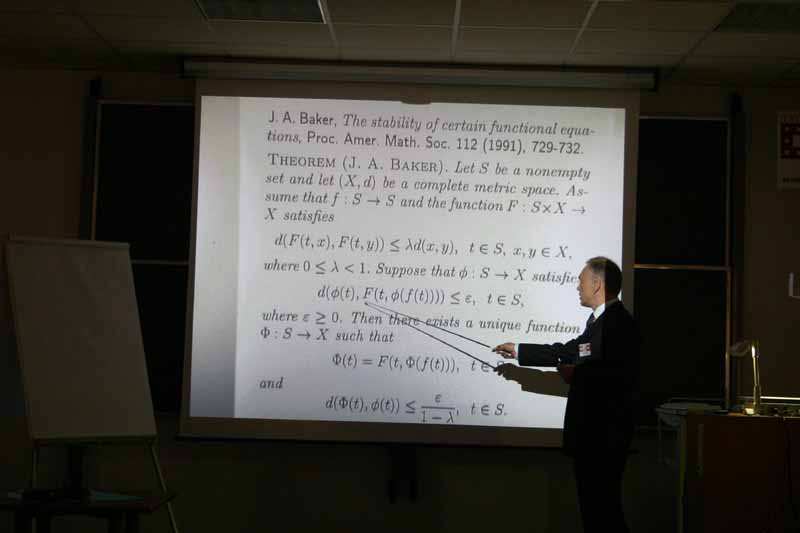 J. A. Baker, The stability of certain functional equa-
tions, Proc. Amer. Math. Soc. 112 (1991), 729-732.
THEOREM (J. A. BAKER). Let S be a nonempty
set and let (X, d) be a complete metric space. As-
sume that f : S → S and the function F : S×X →
X satisfies
d(F(t, x), F(t, y)) ≤ λd(x, y), t ∈ S, x, y ∈ X,
where 0 ≤ λ < 1. Suppose that ϕ : S → X satisfie
d(ϕ(t), F(t, ϕ(f(t)))) ≤ ε, t ∈ S,
where ε ≥ 0. Then there exists a unique function
Φ : S → X such that
Φ(t) = F(t, Φ(f(t))), t ∈ S
and
d(Φ(t), ϕ(t)) ≤ ε/(1 − λ), t ∈ S.